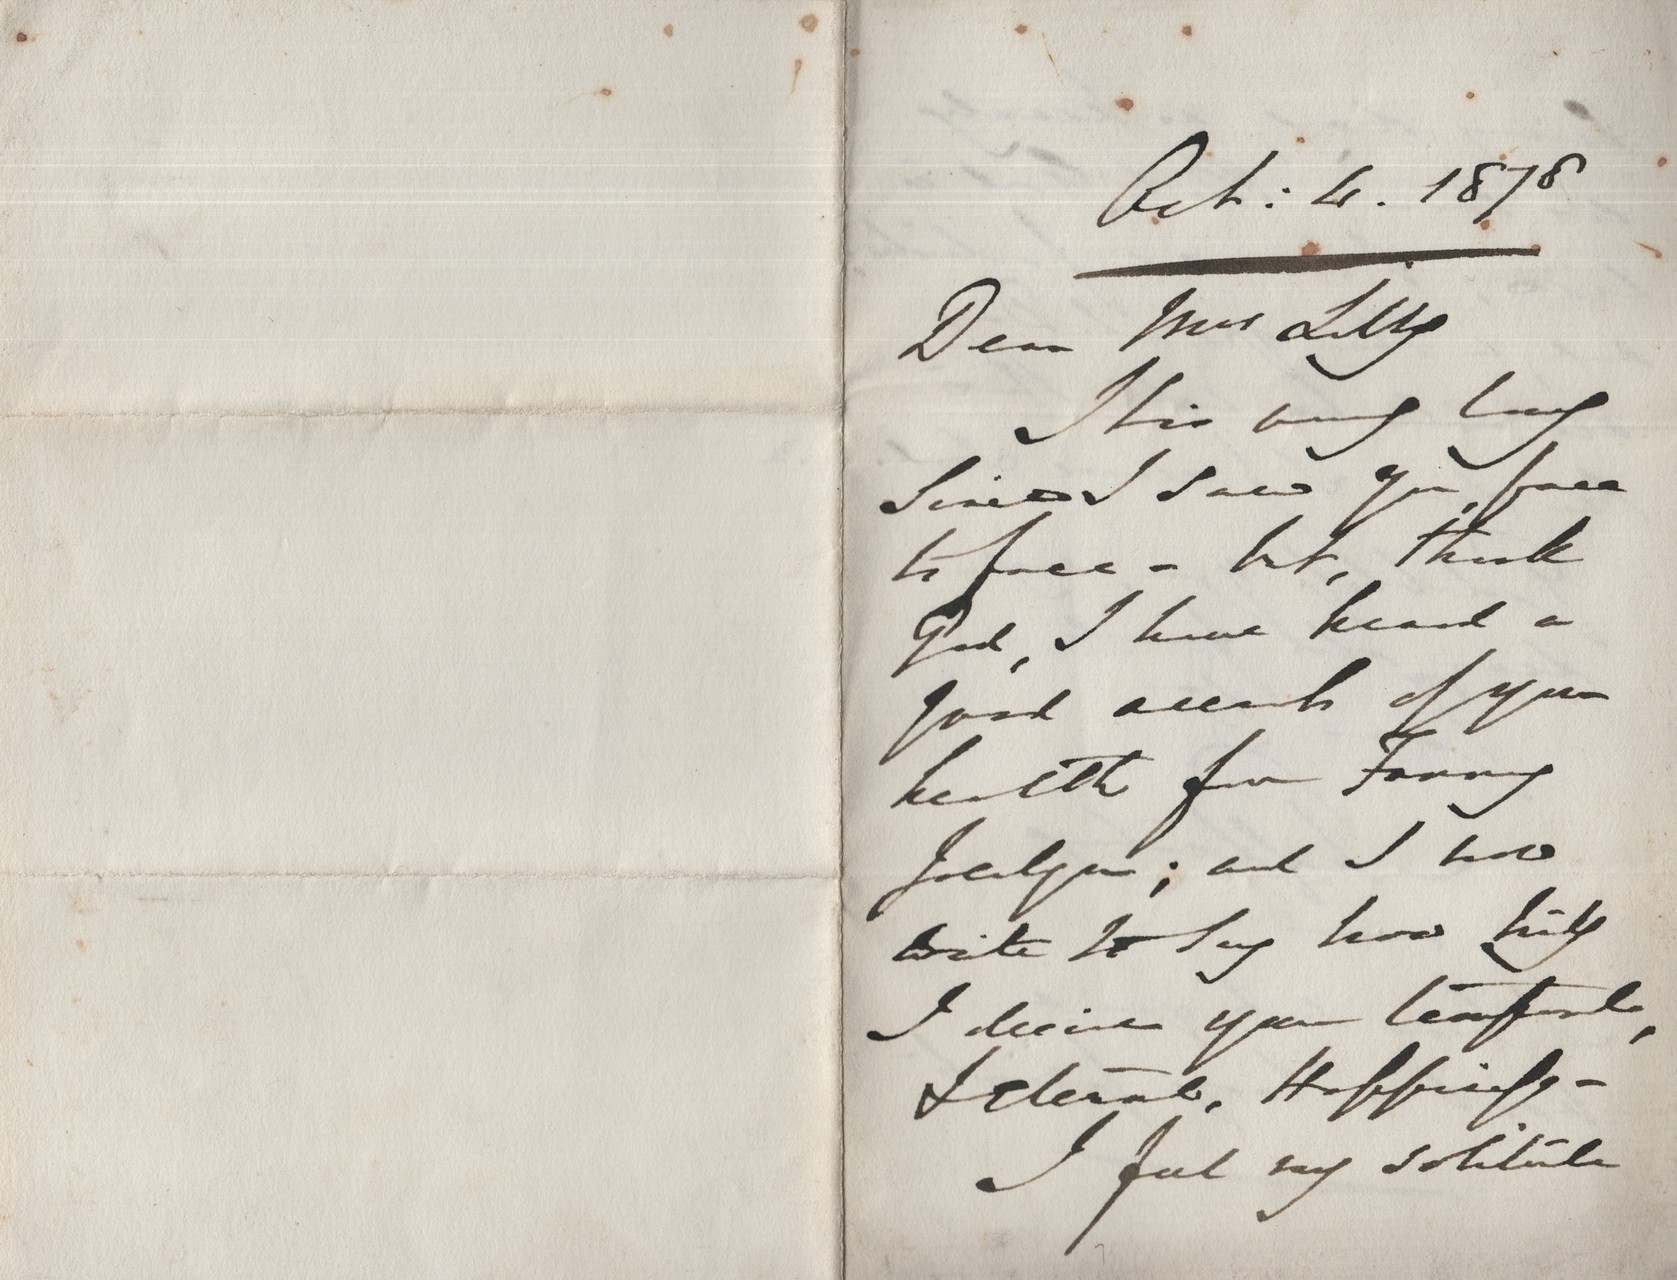 Oct: 4. 1878
Dear Mrs Lilly
It is very long
since I saw you, face
to face - but, thank
God, I have heard a
good account of your
health from Fanny
Jocelyn; and I now
write to say how truly
I desire your temporal,
& eternal, Happiness -
I feel my solitude